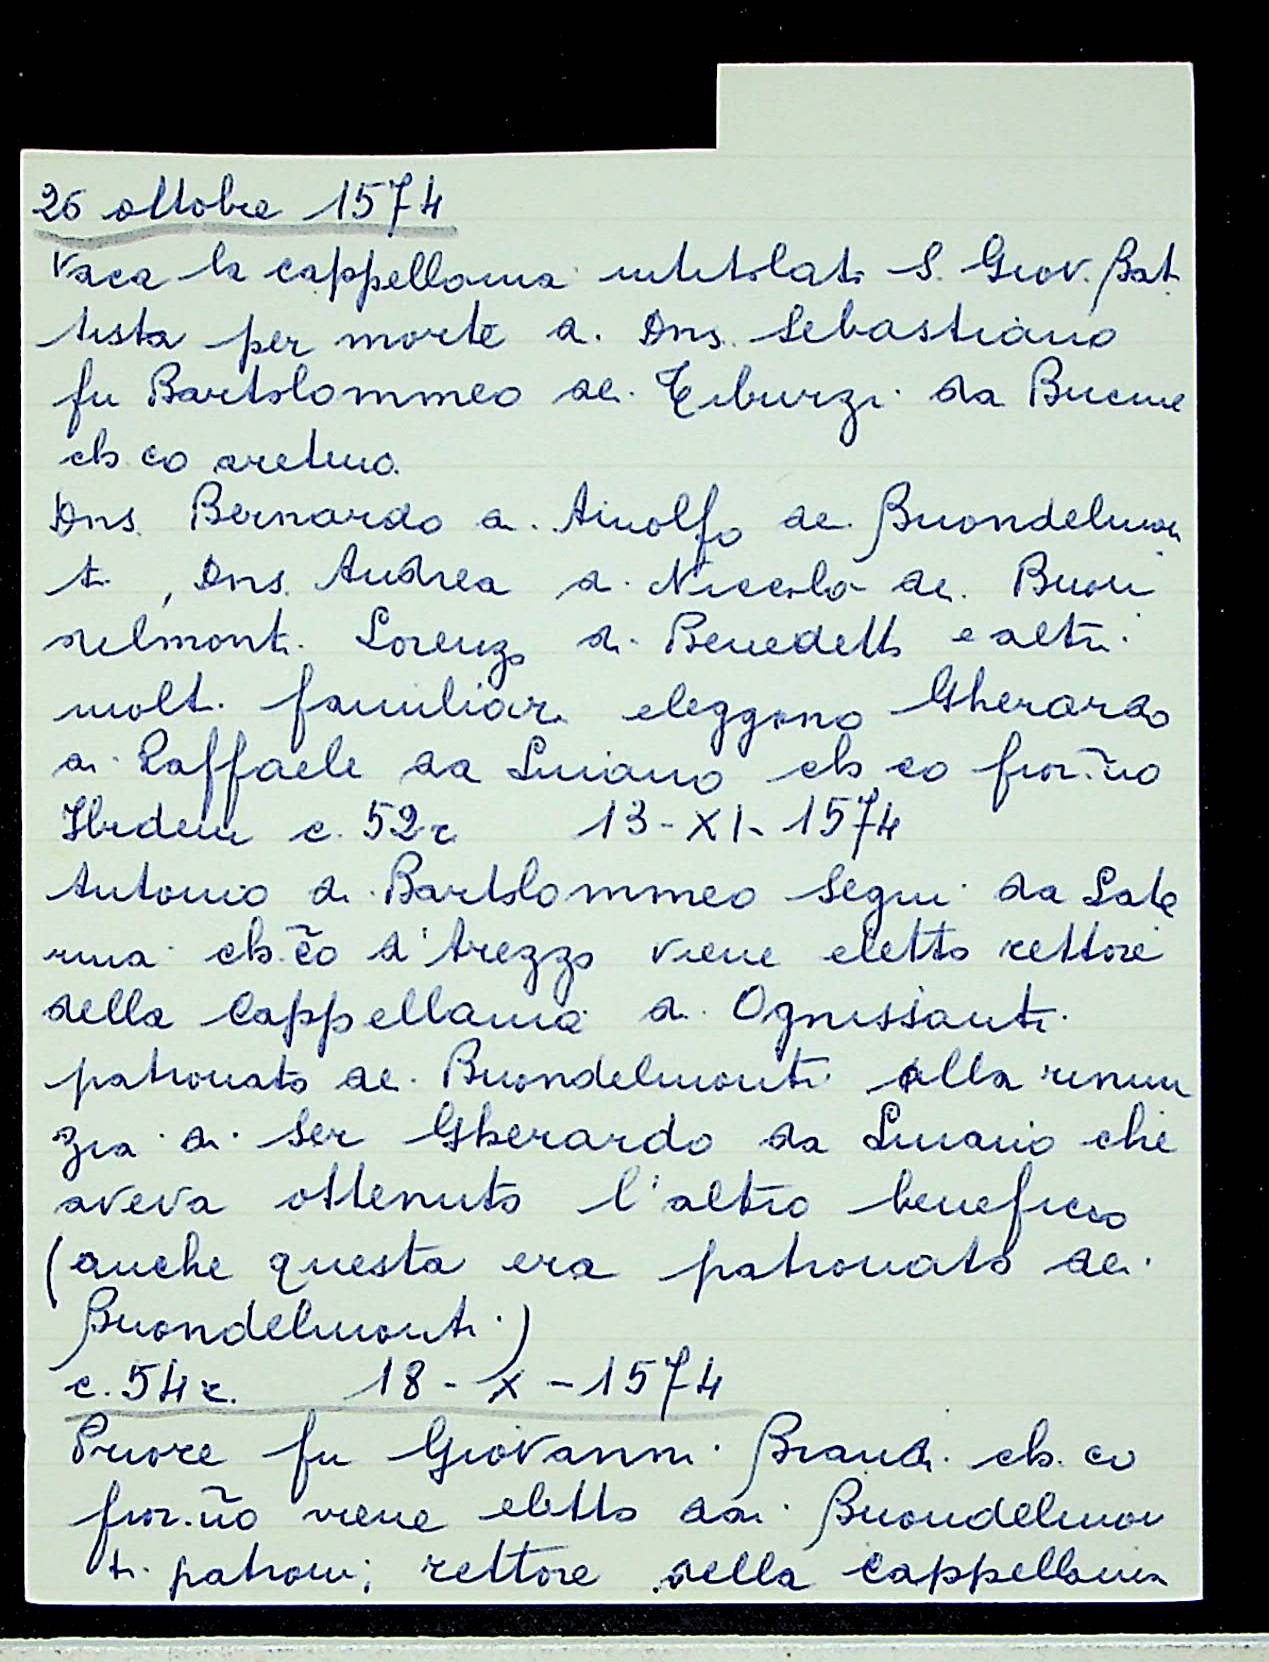 26 ottobre 1574
Vaca la cappellania intitolata S. Giov. Bat
tista per morte di Dns. Sebastiano
fu Bartolommeo dei Tiburzi da Bucine
clo. co aretino.
Dns. Bernardo di Ainolfo dei Buondelmon
ti, Dns. Andrea di Niccolò dei Buon
delmonti Lorenzo di Benedetto e altri
molti familiari eleggono Gherardo
di Raffaele da Luiano clo co fior.ño
Ibidem c. 52r 13-XI-1574
Antonio di Bartolommeo Segni da Late
rina clo. c̃o d'Arezzo viene eletto rettore
della Cappellania di Ognissanti
patronato dei Buondelmonti alla rinun
zia di Ser Gherardo da Luiano che
aveva ottenuto l'altro beneficio
(anche questa era patronato dei
Buondelmonti)
c. 54r. 18-X-1574
Priore fu Giovanni Brandi clo. co
fior.ño viene eletto dai Buondelmon
ti patroni, rettore della Cappellania